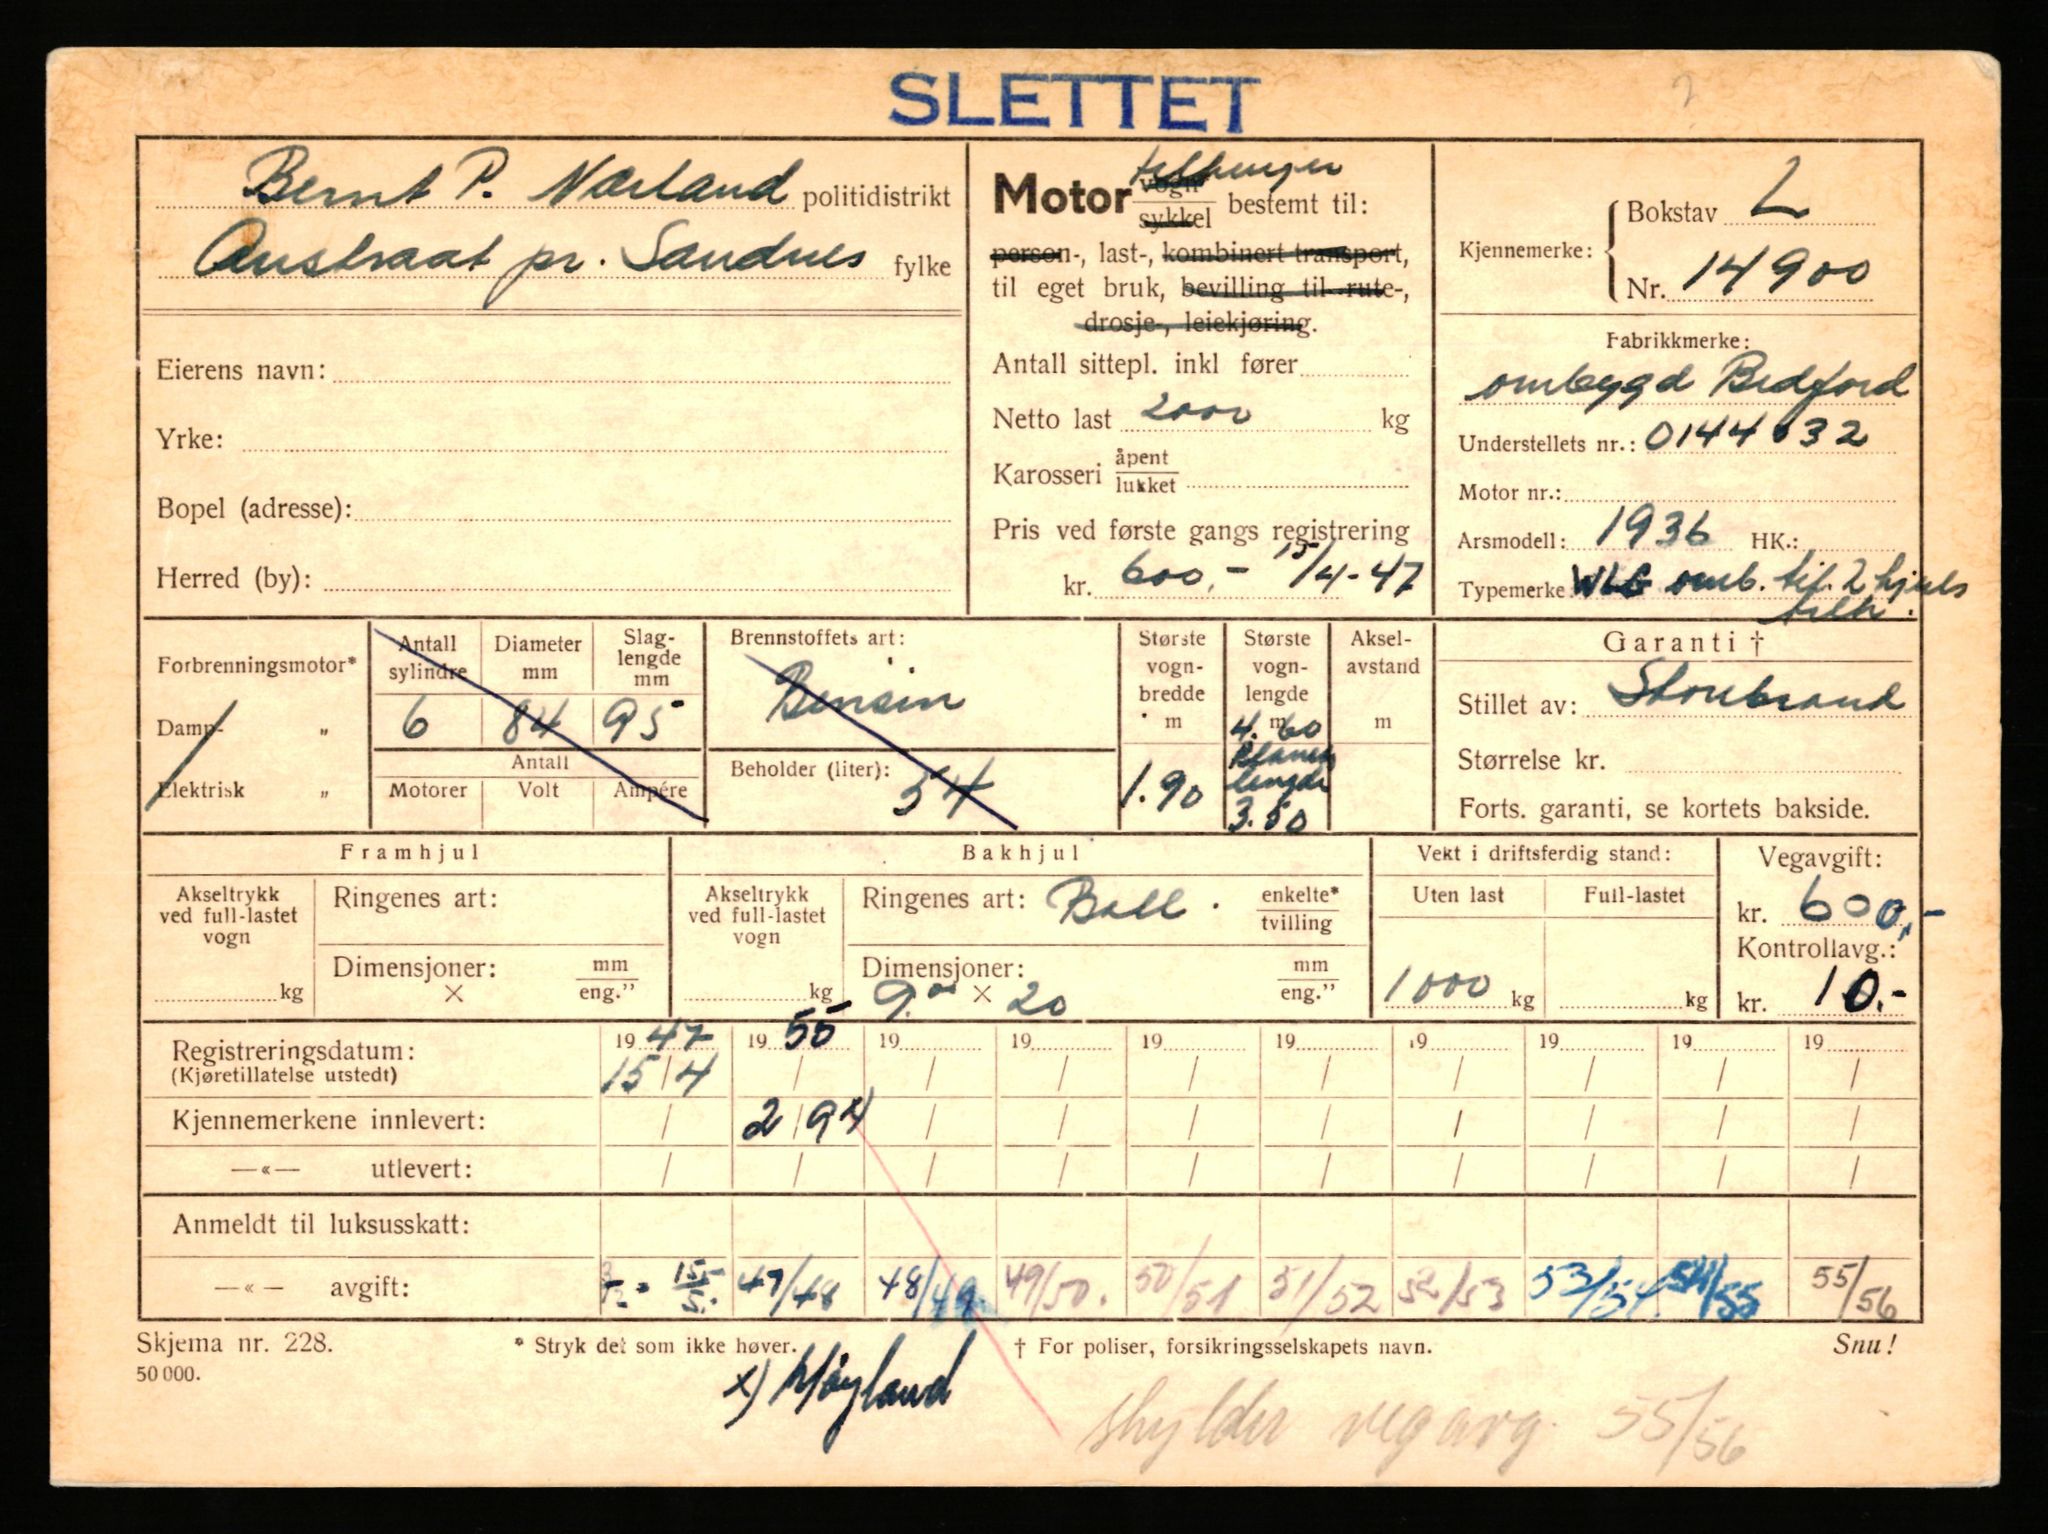 SLETTET
Bernt P. Nærland politidistrikt
Austraat pr. Sandnes fylke
Eierens navn:
Yrke:
Bopel (adresse):
Herred (by):
tilhenger
Motor vogn/sykkel bestemt til:
person-, last-, kombinert transport,
til eget bruk, bevilling til rute-,
drosje-, leiekjøring.
Antall sittepl. inkl fører
Netto last 2000 kg
Karosseri åpent/lukket
Pris ved første gangs registrering
kr. 600,- 15/4-47
Kjennemerke: Bokstav L
Nr. 14900
Fabrikkmerke:
ombygd Bedford
Understellets nr.: 0144032
Motor nr.:
Arsmodell: 1936 HK.:
Typemerke: WLG omb. til 2 hjuls
tilh.
Forbrenningsmotor*
Damp- „
Elektrisk „
Antall sylindre
6
Diameter mm
84
Slag-lengde mm
95
Antall
Motorer Volt Ampére
Brennstoffets art:
Bensin
Beholder (liter):
54
Største vogn-bredde m
1.90
Største vogn-lengde m
4.60
Planets
lengde
3.50
Aksel-avstand m
Garanti †
Stillet av: Storebrand
Størrelse kr.
Forts. garanti, se kortets bakside.
Framhjul
Akseltrykk ved full-lastet vogn
kg
Ringenes art:
Dimensjoner: mm/eng."
×
Bakhjul
Akseltrykk ved full-lastet vogn
kg
Ringenes art: Ball. enkelte*/tvilling
Dimensjoner: mm/eng."
9.00 × 20
Vekt i driftsferdig stand:
Uten last Full-lastet
1000 kg kg
Vegavgift:
kr. 600,-
Kontrollavg.:
kr. 10.-
Registreringsdatum: 19 47 19 55 19 19 19 19 19 19 19 19
(Kjøretillatelse utstedt) 15/4 / / / / / / / / /
Kjennemerkene innlevert: / 2/9 x) / / / / / / / /
—«— utlevert: / / / / / / / / / /
Anmeldt til luksusskatt:
—«— avgift: 15/5. 47/48 48/49 49/50. 50/51 51/52 52/53 53/54. 54/55 55/56
Skjema nr. 228. * Stryk det som ikke høver. † For poliser, forsikringsselskapets navn. Snu!
50 000.
x) Høyland
skylder vegavg. 55/56